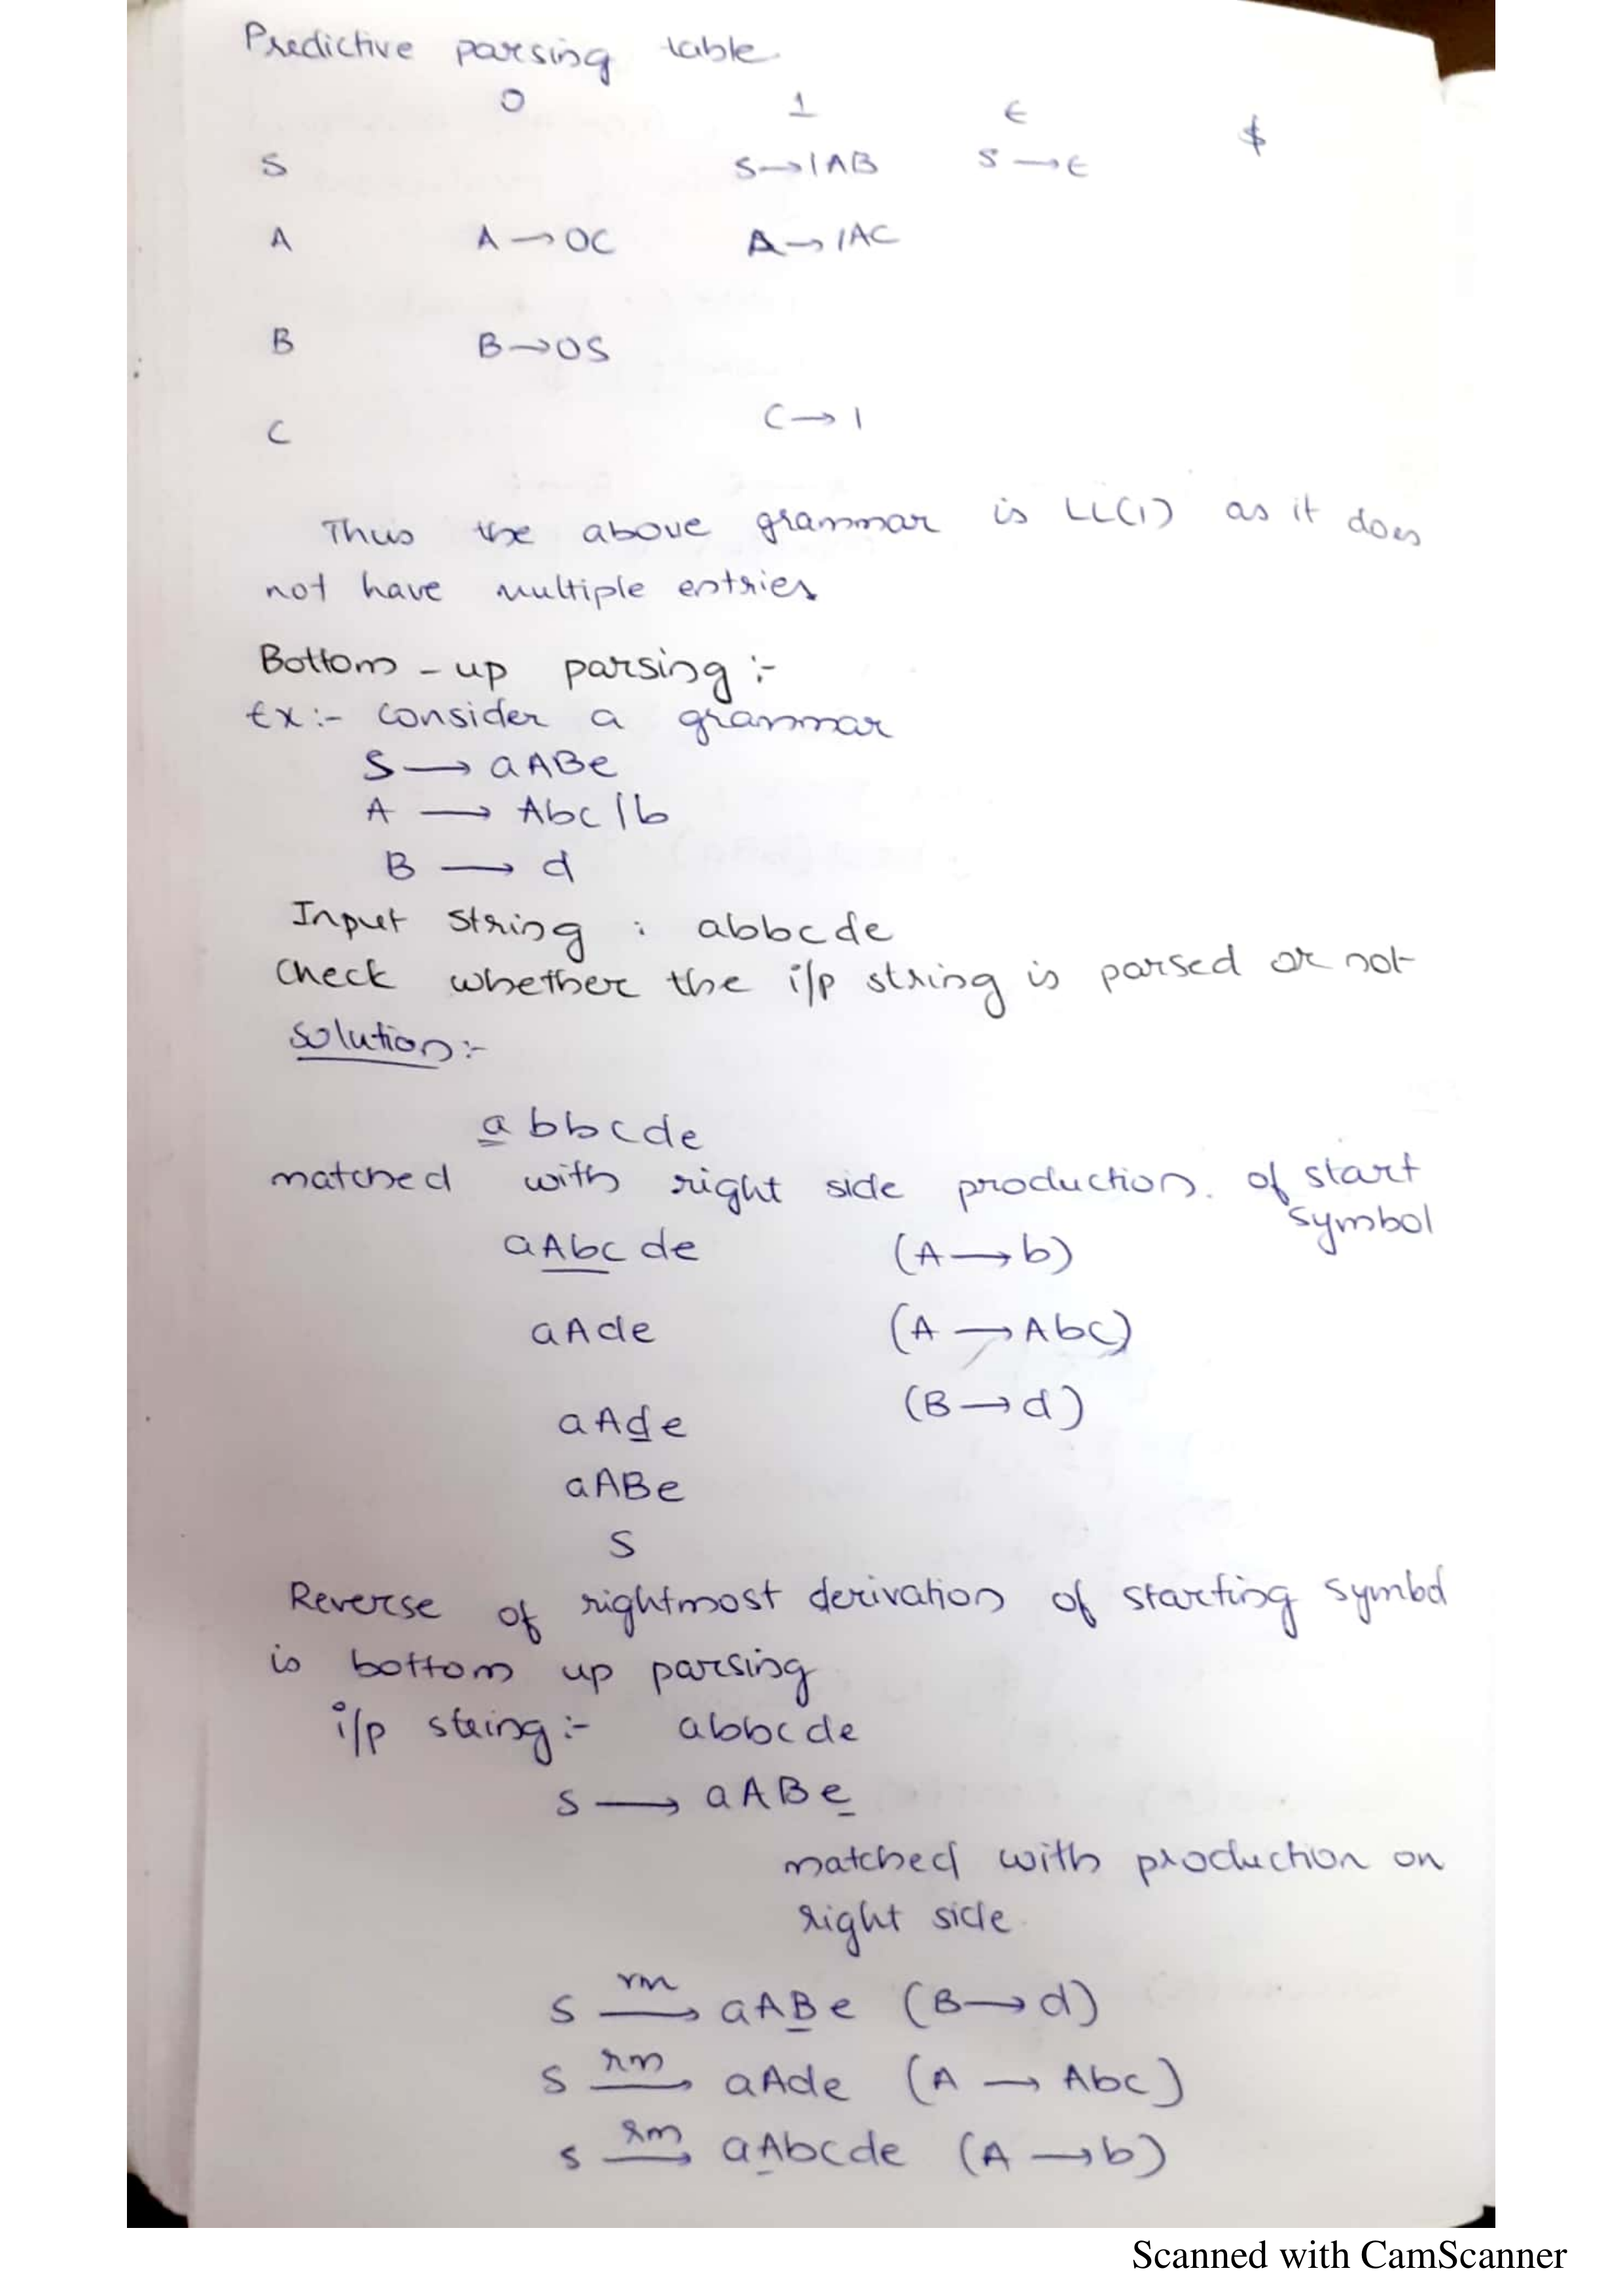 Predictive parsing table
0 1 ϵ $
S S→1AB S→ϵ
A A→0C A→1AC
B B→0S
C C→1
Thus the above grammar is LL(1) as it does
not have multiple entries
Bottom-up parsing :-
Ex:- consider a grammar
S → aABe
A → Abc/b
B → d
Input string : abbcde
Check whether the i/p string is parsed or not
solution:-
abbcde
matched with right side production. of start
symbol
aAbcde (A→b)
aAde (A→Abc)
(B→d)
aAde
aABe
S
Reverse of rightmost derivation of starting symbol
is bottom up parsing
i/p string:- abbcde
S → aABe
matched with production on
right side
rm
S → aABe (B→d)
rm
S → aAde (A→Abc)
rm
S → aAbcde (A→b)
Scanned with CamScanner